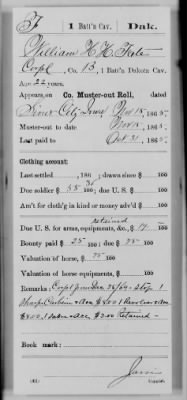 F 1 Batt'n Cav. Dak.
William H. H. Fate
Corpl, Co. B, 1 Batt'n Dakota Cav.
Age 22 years.
Appears on Co. Muster-out Roll, dated
Sioux City Iowa, Nov 15, 1865.
Muster-out to date Nov 15, 1865.
Last paid to Oct 31, 1865.
Clothing account:
Last settled , 186 ; drawn since $ 100
Due soldier $ 55 100; due U. S. $ 100
Am't for cloth'g in kind or money adv'd $ 100
retained
Due U. S. for arms, equipments, &c., $ 14 100
Bounty paid $ 25 100; due $ 75 100
Valuation of horse, $ 75 100
Valuation of horse equipments, $ 100
Remarks: Corpl from Stop 1
Sharps Carbine & acc $8.00 1 Revolver & acc
$8.00 1 Sabre & acc $3.00 Retained -
Book mark:
Jarvis
Copyist.